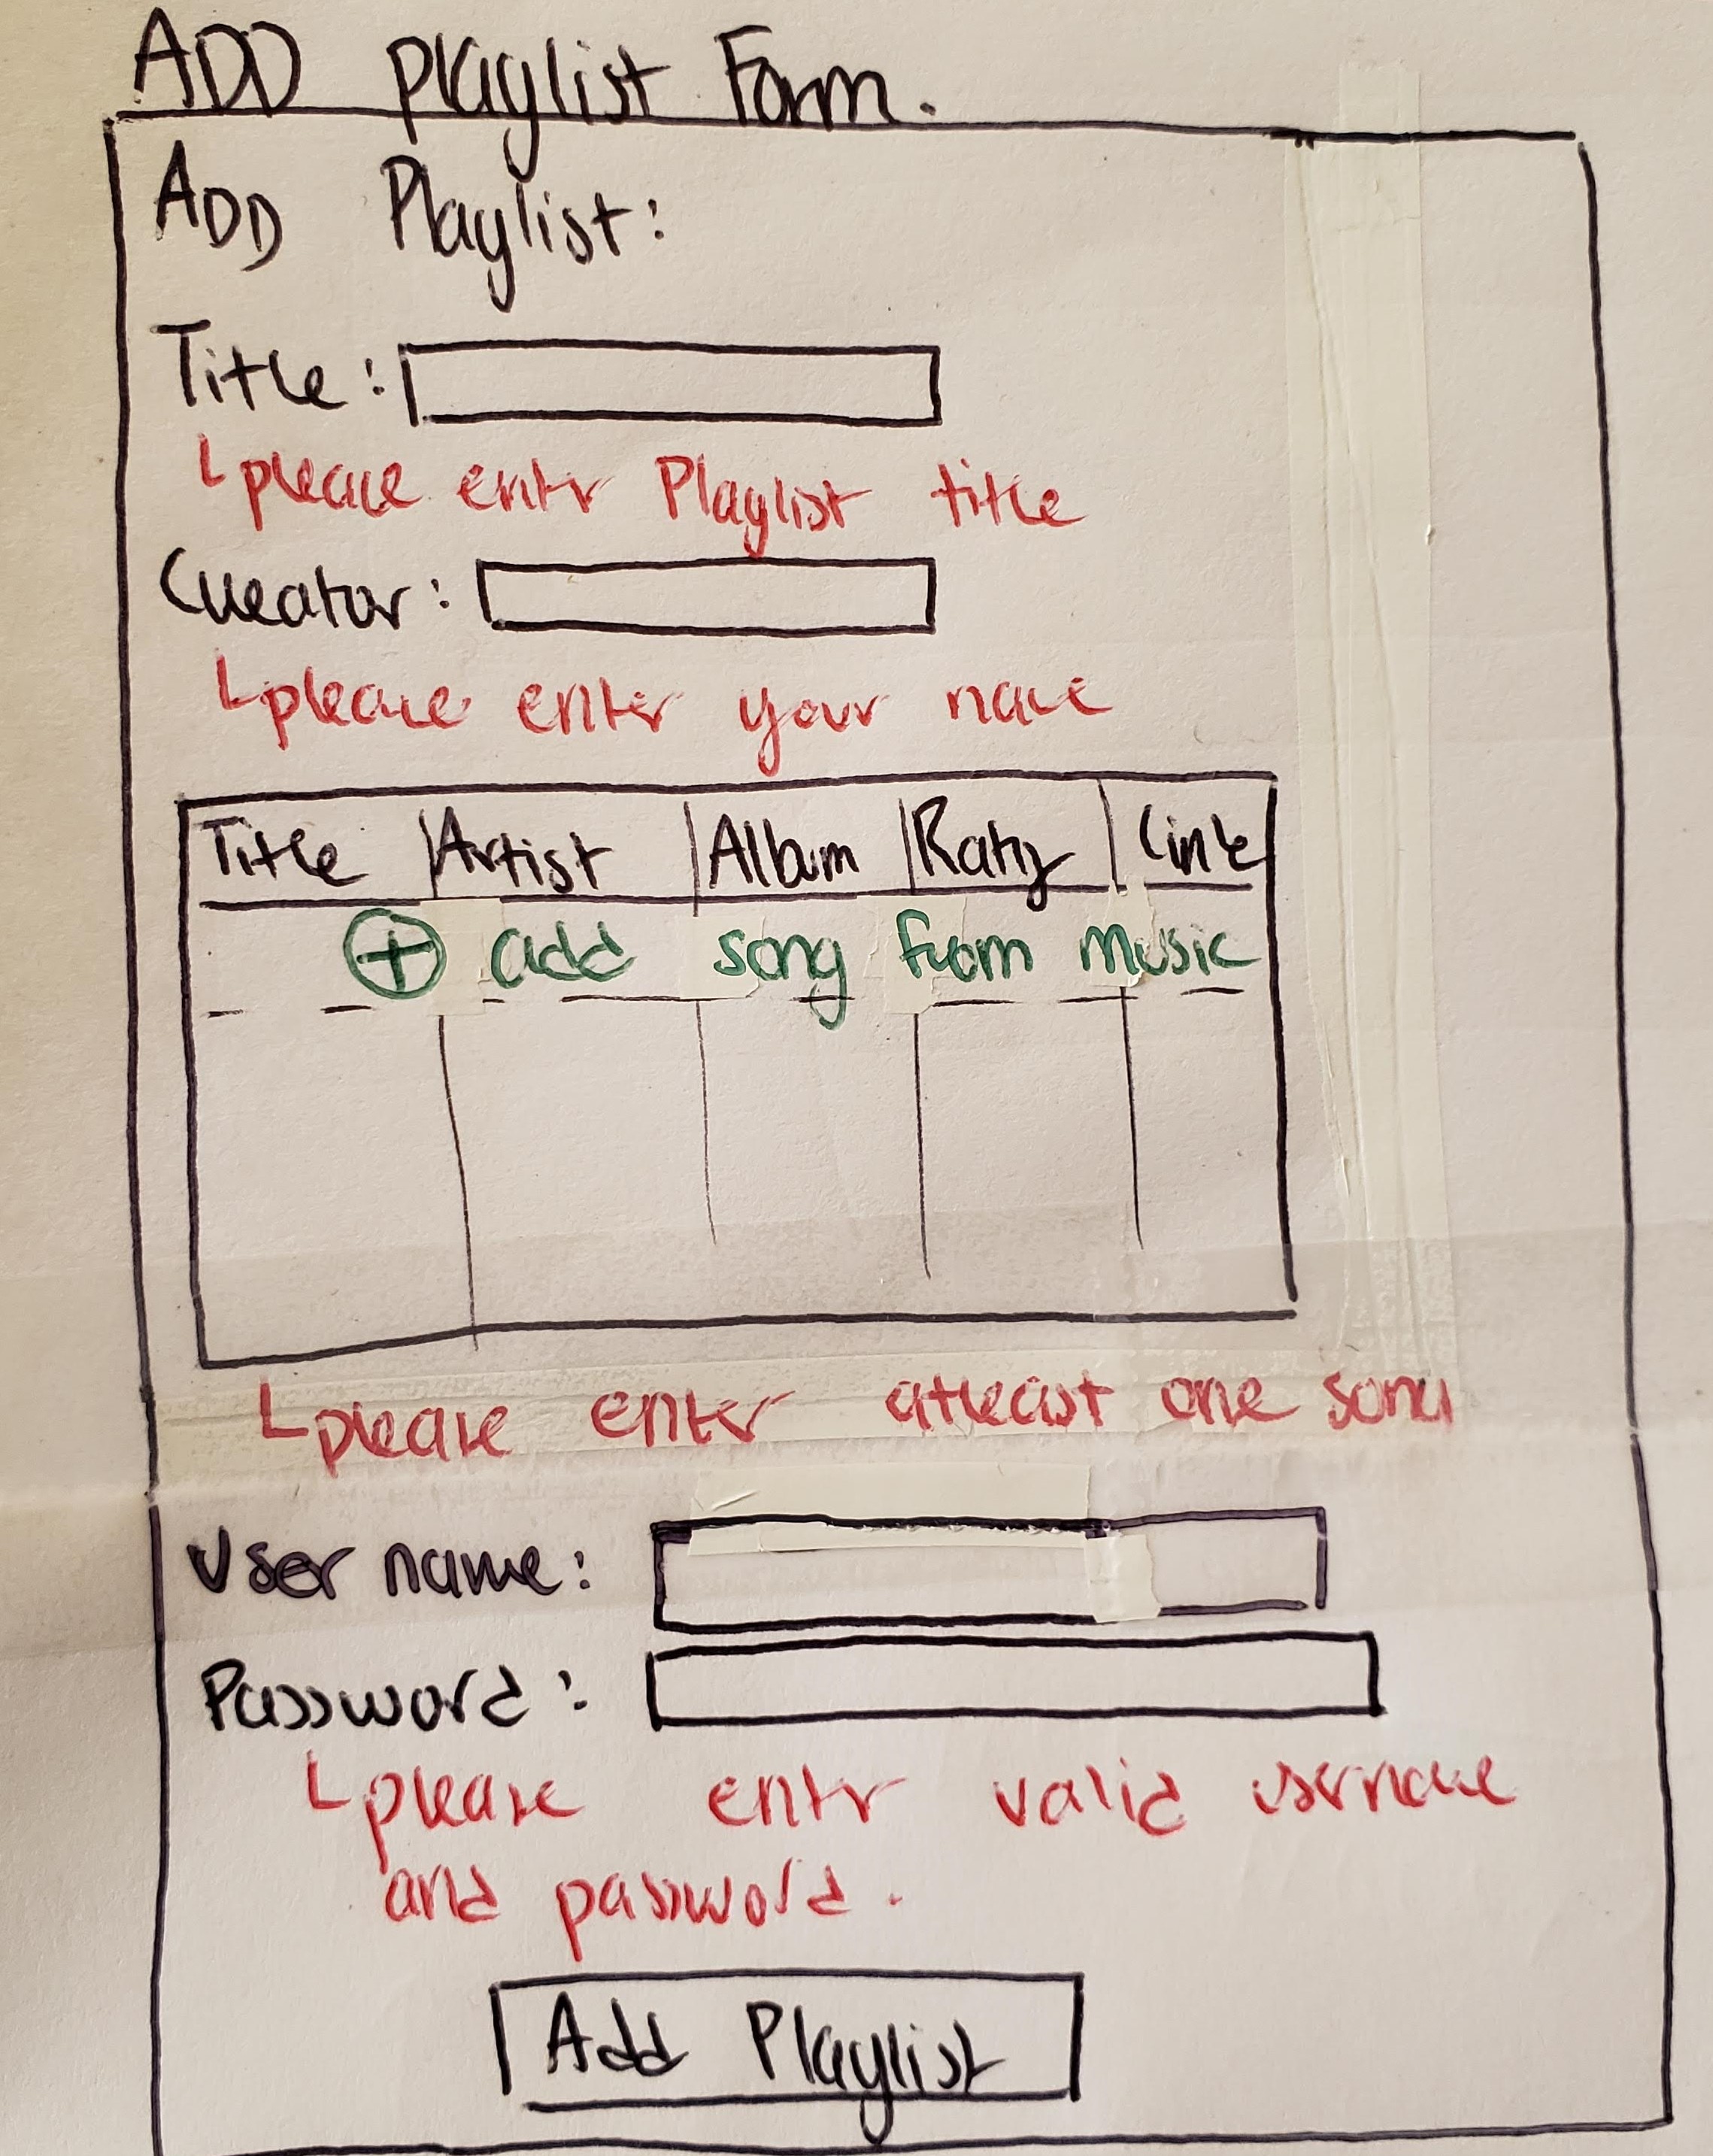 ADD Playlist Form.
ADD Playlist:
Title:
please enter Playlist title
Creator:
please enter your name
Title Artist Album Rating Link
+ add song from music
please enter atleast one song
User name:
Password:
please enter valid username
and password.
Add Playlist